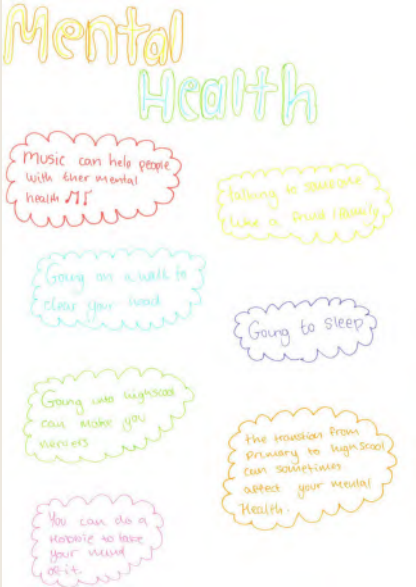 Mental
Health
Music can help people
with ther mental
health ♫♫
talking to someone
like a frind / family
Going on a walk to
clear your head
Going to sleep
Going into highscool
can make you
nervers
the transtion from
Primary to highscool
can sometimes
affect your mental
Health.
You can do a
Hobbie to take
your mind
of it.